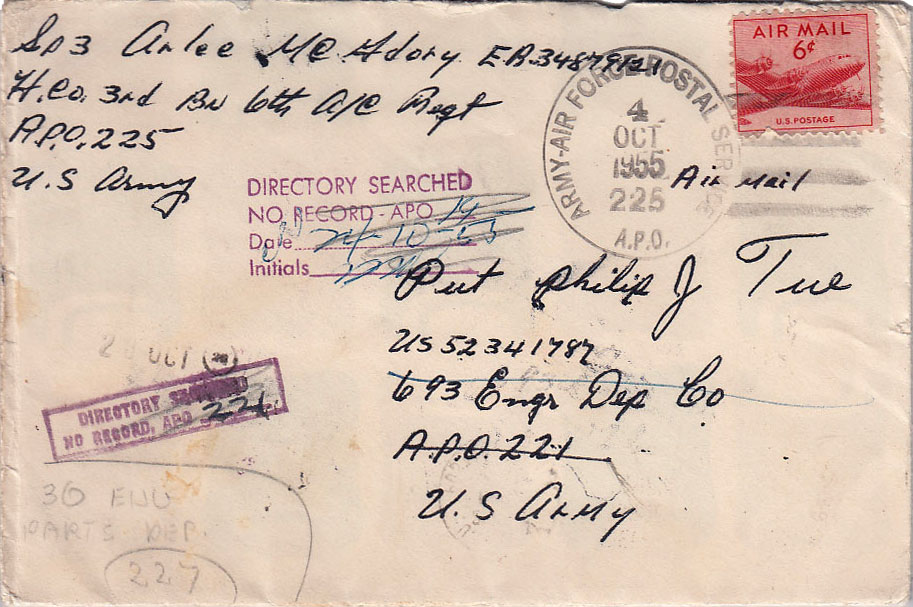 Sp3 Arlee McAdory ER34879121
H.Co. 3rd Bn 6th A/C Regt
A.P.O. 225
U.S Army
AIR MAIL
6¢
U.S. POSTAGE
ARMY-AIR FORCE POSTAL SERVICE
4
OCT
1955
225
A.P.O.
Air Mail
DIRECTORY SEARCHED
NO RECORD - APO
Date 24-10-55
Initials
Pvt Philip J Tue
US 52341787
693 Engr Dep Co
A.P.O. 221
U.S Army
OCT
DIRECTORY
NO RECORD, APO 221
36 ENG
PARTS DEP.
227